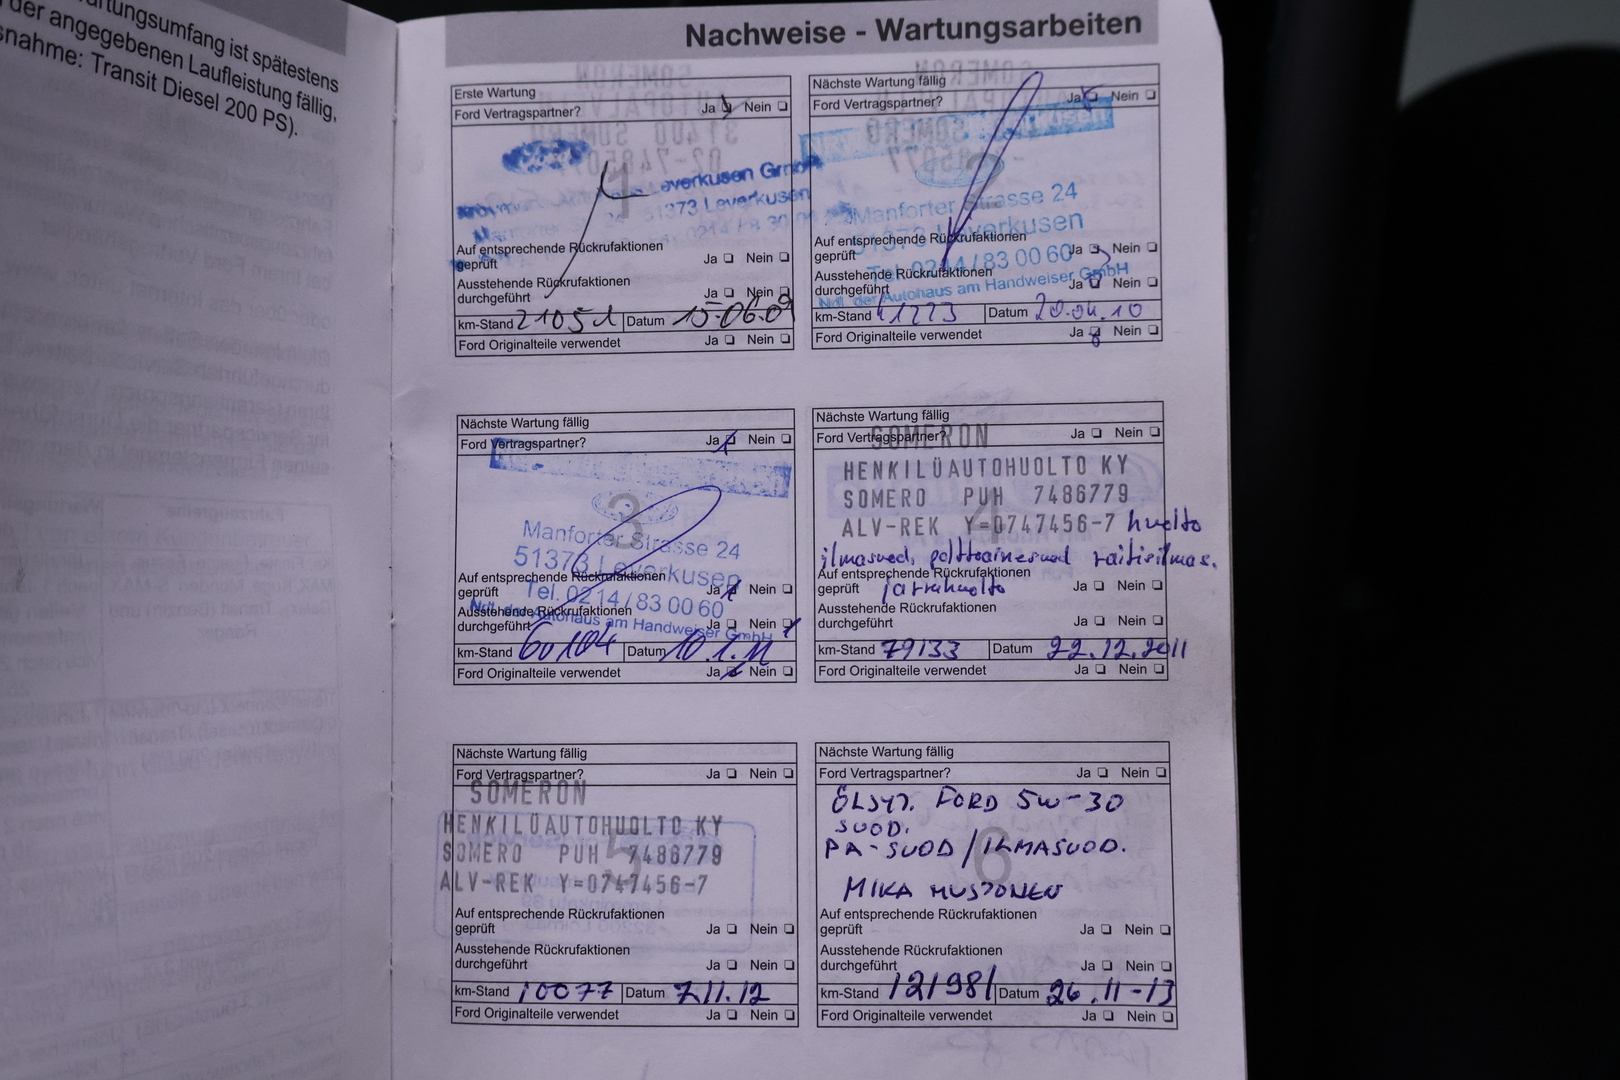 rtungsumfang ist spätestens
der angegebenen Laufleistung fällig,
snahme: Transit Diesel 200 PS).
Nachweise - Wartungsarbeiten
Erste Wartung
Ford Vertragspartner? Ja Nein
1
Leverkusen GmbH
51373 Leverkusen
Auf entsprechende Rückrufaktionen
geprüft Ja Nein
Ausstehende Rückrufaktionen
durchgeführt Ja Nein
km-Stand 21051 Datum 15.06.09
Ford Originalteile verwendet Ja Nein
Nächste Wartung fällig
Ford Vertragspartner? Ja Nein
2
Manforter Strasse 24
51373 Leverkusen
Auf entsprechende Rückrufaktionen
geprüft Ja Nein
Tel. 0214/83 00 60
Ausstehende Rückrufaktionen
durchgeführt Ja Nein
Ndl. der Autohaus am Handweiser GmbH
km-Stand 41223 Datum 20.04.10
Ford Originalteile verwendet Ja Nein
Nächste Wartung fällig
Ford Vertragspartner? Ja Nein
3
Manforter Strasse 24
51373 Leverkusen
Auf entsprechende Rückrufaktionen
geprüft Ja Nein
Tel. 0214/83 00 60
Ausstehende Rückrufaktionen
durchgeführt Ja Nein
Ndl. der Autohaus am Handweiser GmbH
km-Stand 60104 Datum 10.1.11
Ford Originalteile verwendet Ja Nein
Nächste Wartung fällig
Ford Vertragspartner? Ja Nein
4
SOMERON
HENKILÖAUTOHUOLTO KY
SOMERO PUH 7486779
ALV-REK Y=0747456-7 huolto
ilmasuod, polttoainesuod raitisilmas.
Auf entsprechende Rückrufaktionen
geprüft Ja Nein
jarruhuolto
Ausstehende Rückrufaktionen
durchgeführt Ja Nein
km-Stand 79133 Datum 22.12.2011
Ford Originalteile verwendet Ja Nein
Nächste Wartung fällig
Ford Vertragspartner? Ja Nein
5
SOMERON
HENKILÖAUTOHUOLTO KY
SOMERO PUH 7486779
ALV-REK Y=0747456-7
Auf entsprechende Rückrufaktionen
geprüft Ja Nein
Ausstehende Rückrufaktionen
durchgeführt Ja Nein
km-Stand 10077 Datum 7.11.12
Ford Originalteile verwendet Ja Nein
Nächste Wartung fällig
Ford Vertragspartner? Ja Nein
6
ÖLJYT. FORD 5W-30
SUOD.
PA-SUOD/ILMASUOD.
MIKA MUSTONEN
Auf entsprechende Rückrufaktionen
geprüft Ja Nein
Ausstehende Rückrufaktionen
durchgeführt Ja Nein
km-Stand 121981 Datum 26.11-13
Ford Originalteile verwendet Ja Nein